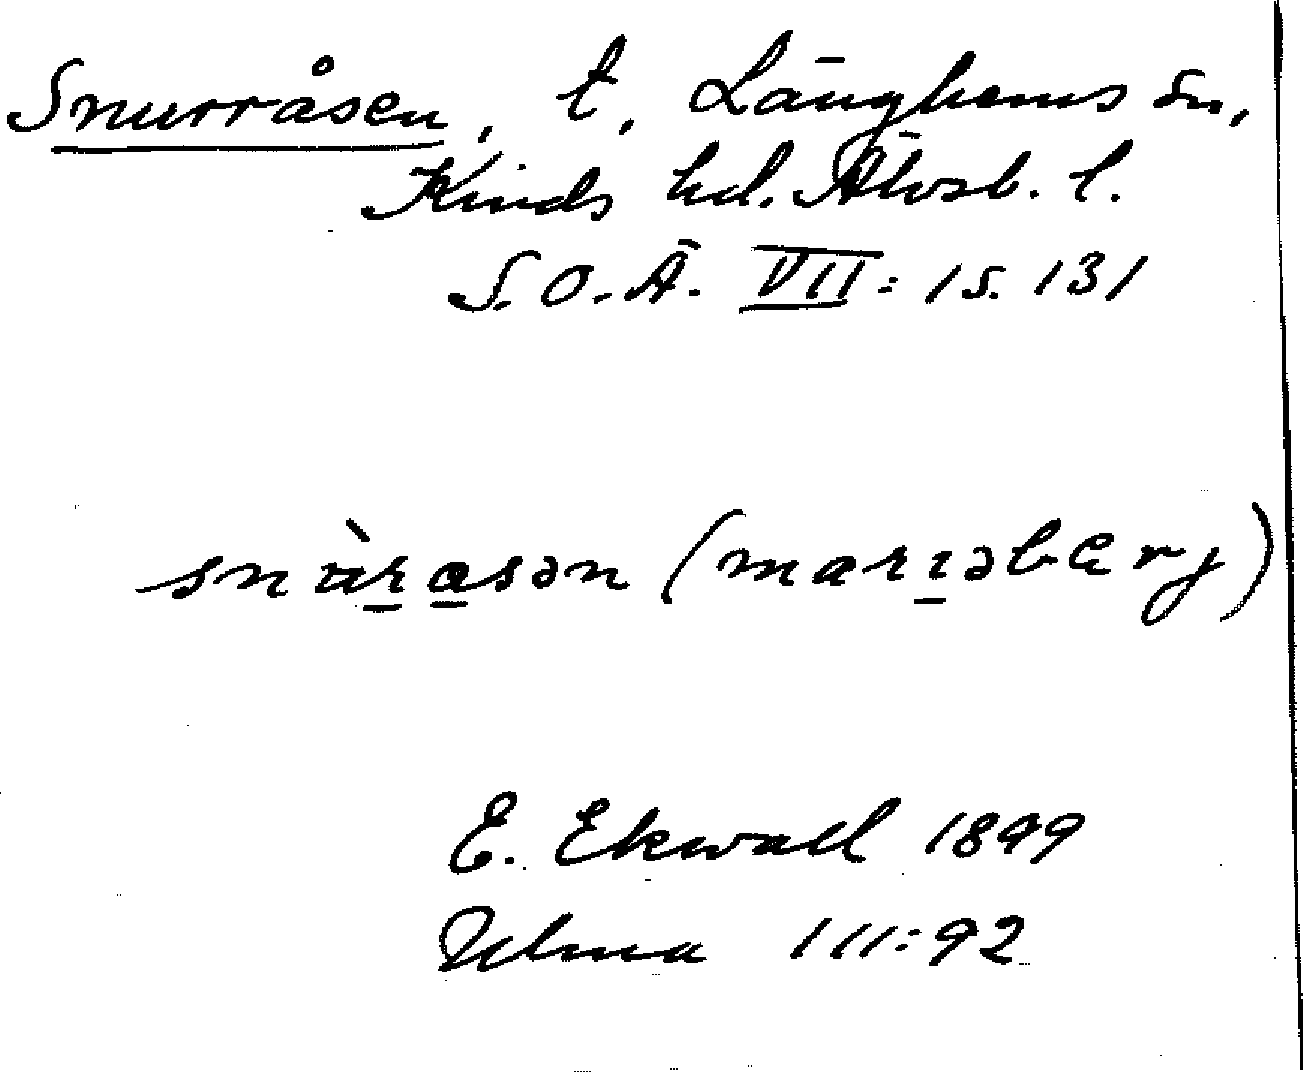 Snurråsen, t, Länghems sn,
Kinds hd. Älvsb. l.
S.O.Ä. VII:1 s. 131
snùrasən (mariəbærj)
E. Ekwall 1899
Ulma 111:92